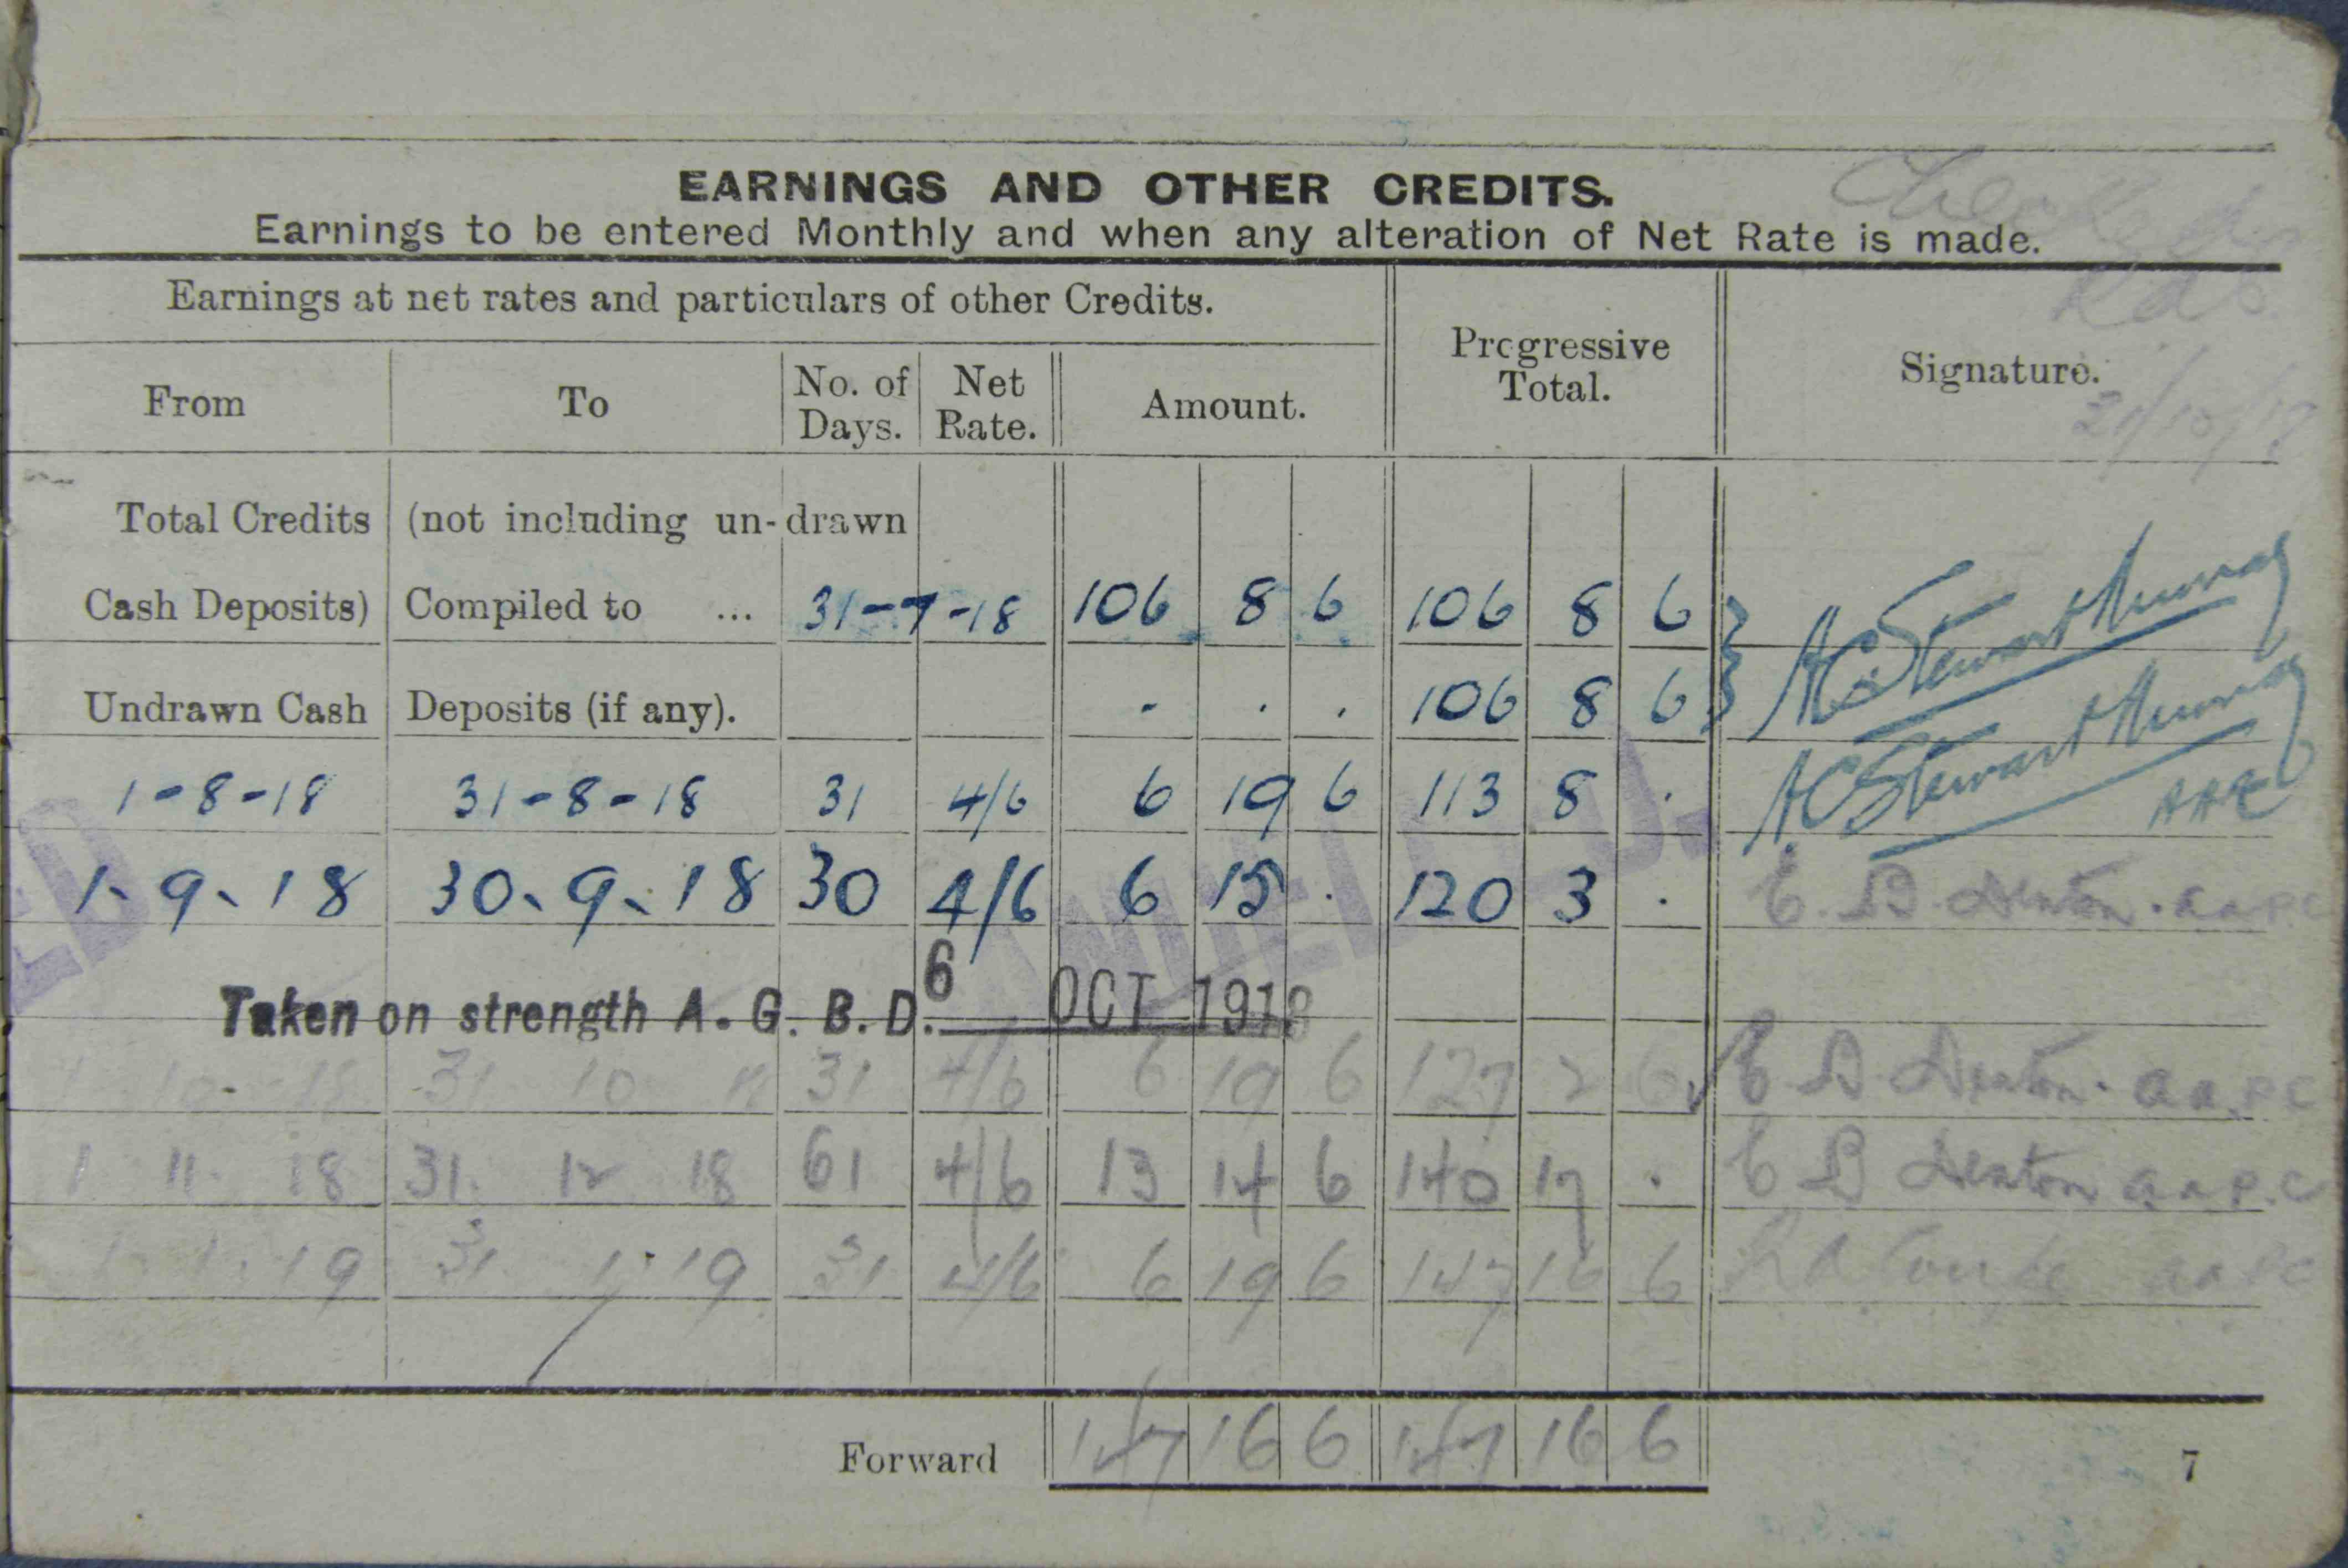 Checked
21/10/18
EARNINGS AND OTHER CREDITS.
Earnings to be entered Monthly and when any alteration of Net Rate is made.
Earnings at net rates and particulars of other Credits.
Progressive Total.
Signature.
From To No. of Days. Net Rate. Amount.
Total Credits (not including un-drawn
Cash Deposits) Compiled to ... 31-7-18 106 8 6 106 8 6 } A C Stewart Murray
Undrawn Cash Deposits (if any). - . . 106 8 6 }
1-8-18 31-8-18 31 4/6 6 19 6 113 8 . A C Stewart Murray
1.9.18 30.9.18 30 4/6 6 15 . 120 3 . E B Denton. AAPC
Taken on strength A.G.B.D. 6 OCT 1918
1 10 18 31 10 18 31 4/6 6 19 6 127 2 6 E B Denton. AAPC
1 11 18 31. 12 18 61 4/6 13 14 6 140 17 . E B Denton AAP.C
1 1 19 31 1 19 31 4/6 6 19 6 147 16 6 AAPC
Forward 147 16 6 147 16 6
7